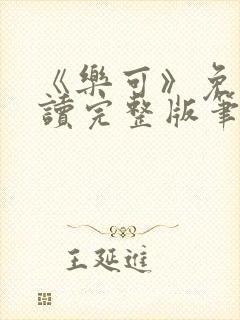 《樂可》免
讀完整版筆
王延進